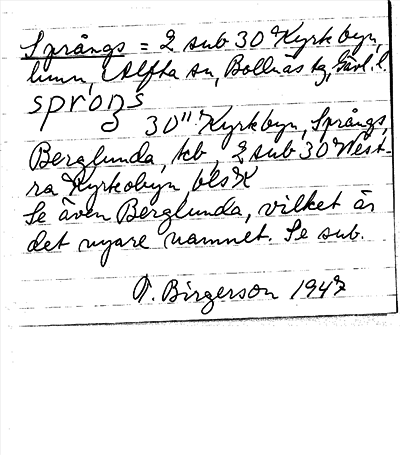 Språngs = 2 sub 30 Kyrkbyn,
hmn, Alfta sn, Bollnäs tg, Gävl. l.
sprɔŋs
30" Kyrkbyn, Språngs,
Berglunda, kb, 2 sub 30 West-
ra Kyrkobyn bls X
Se även Berglunda, vilket är
det nyare namnet. Se sub.
T. Birgerson 1947